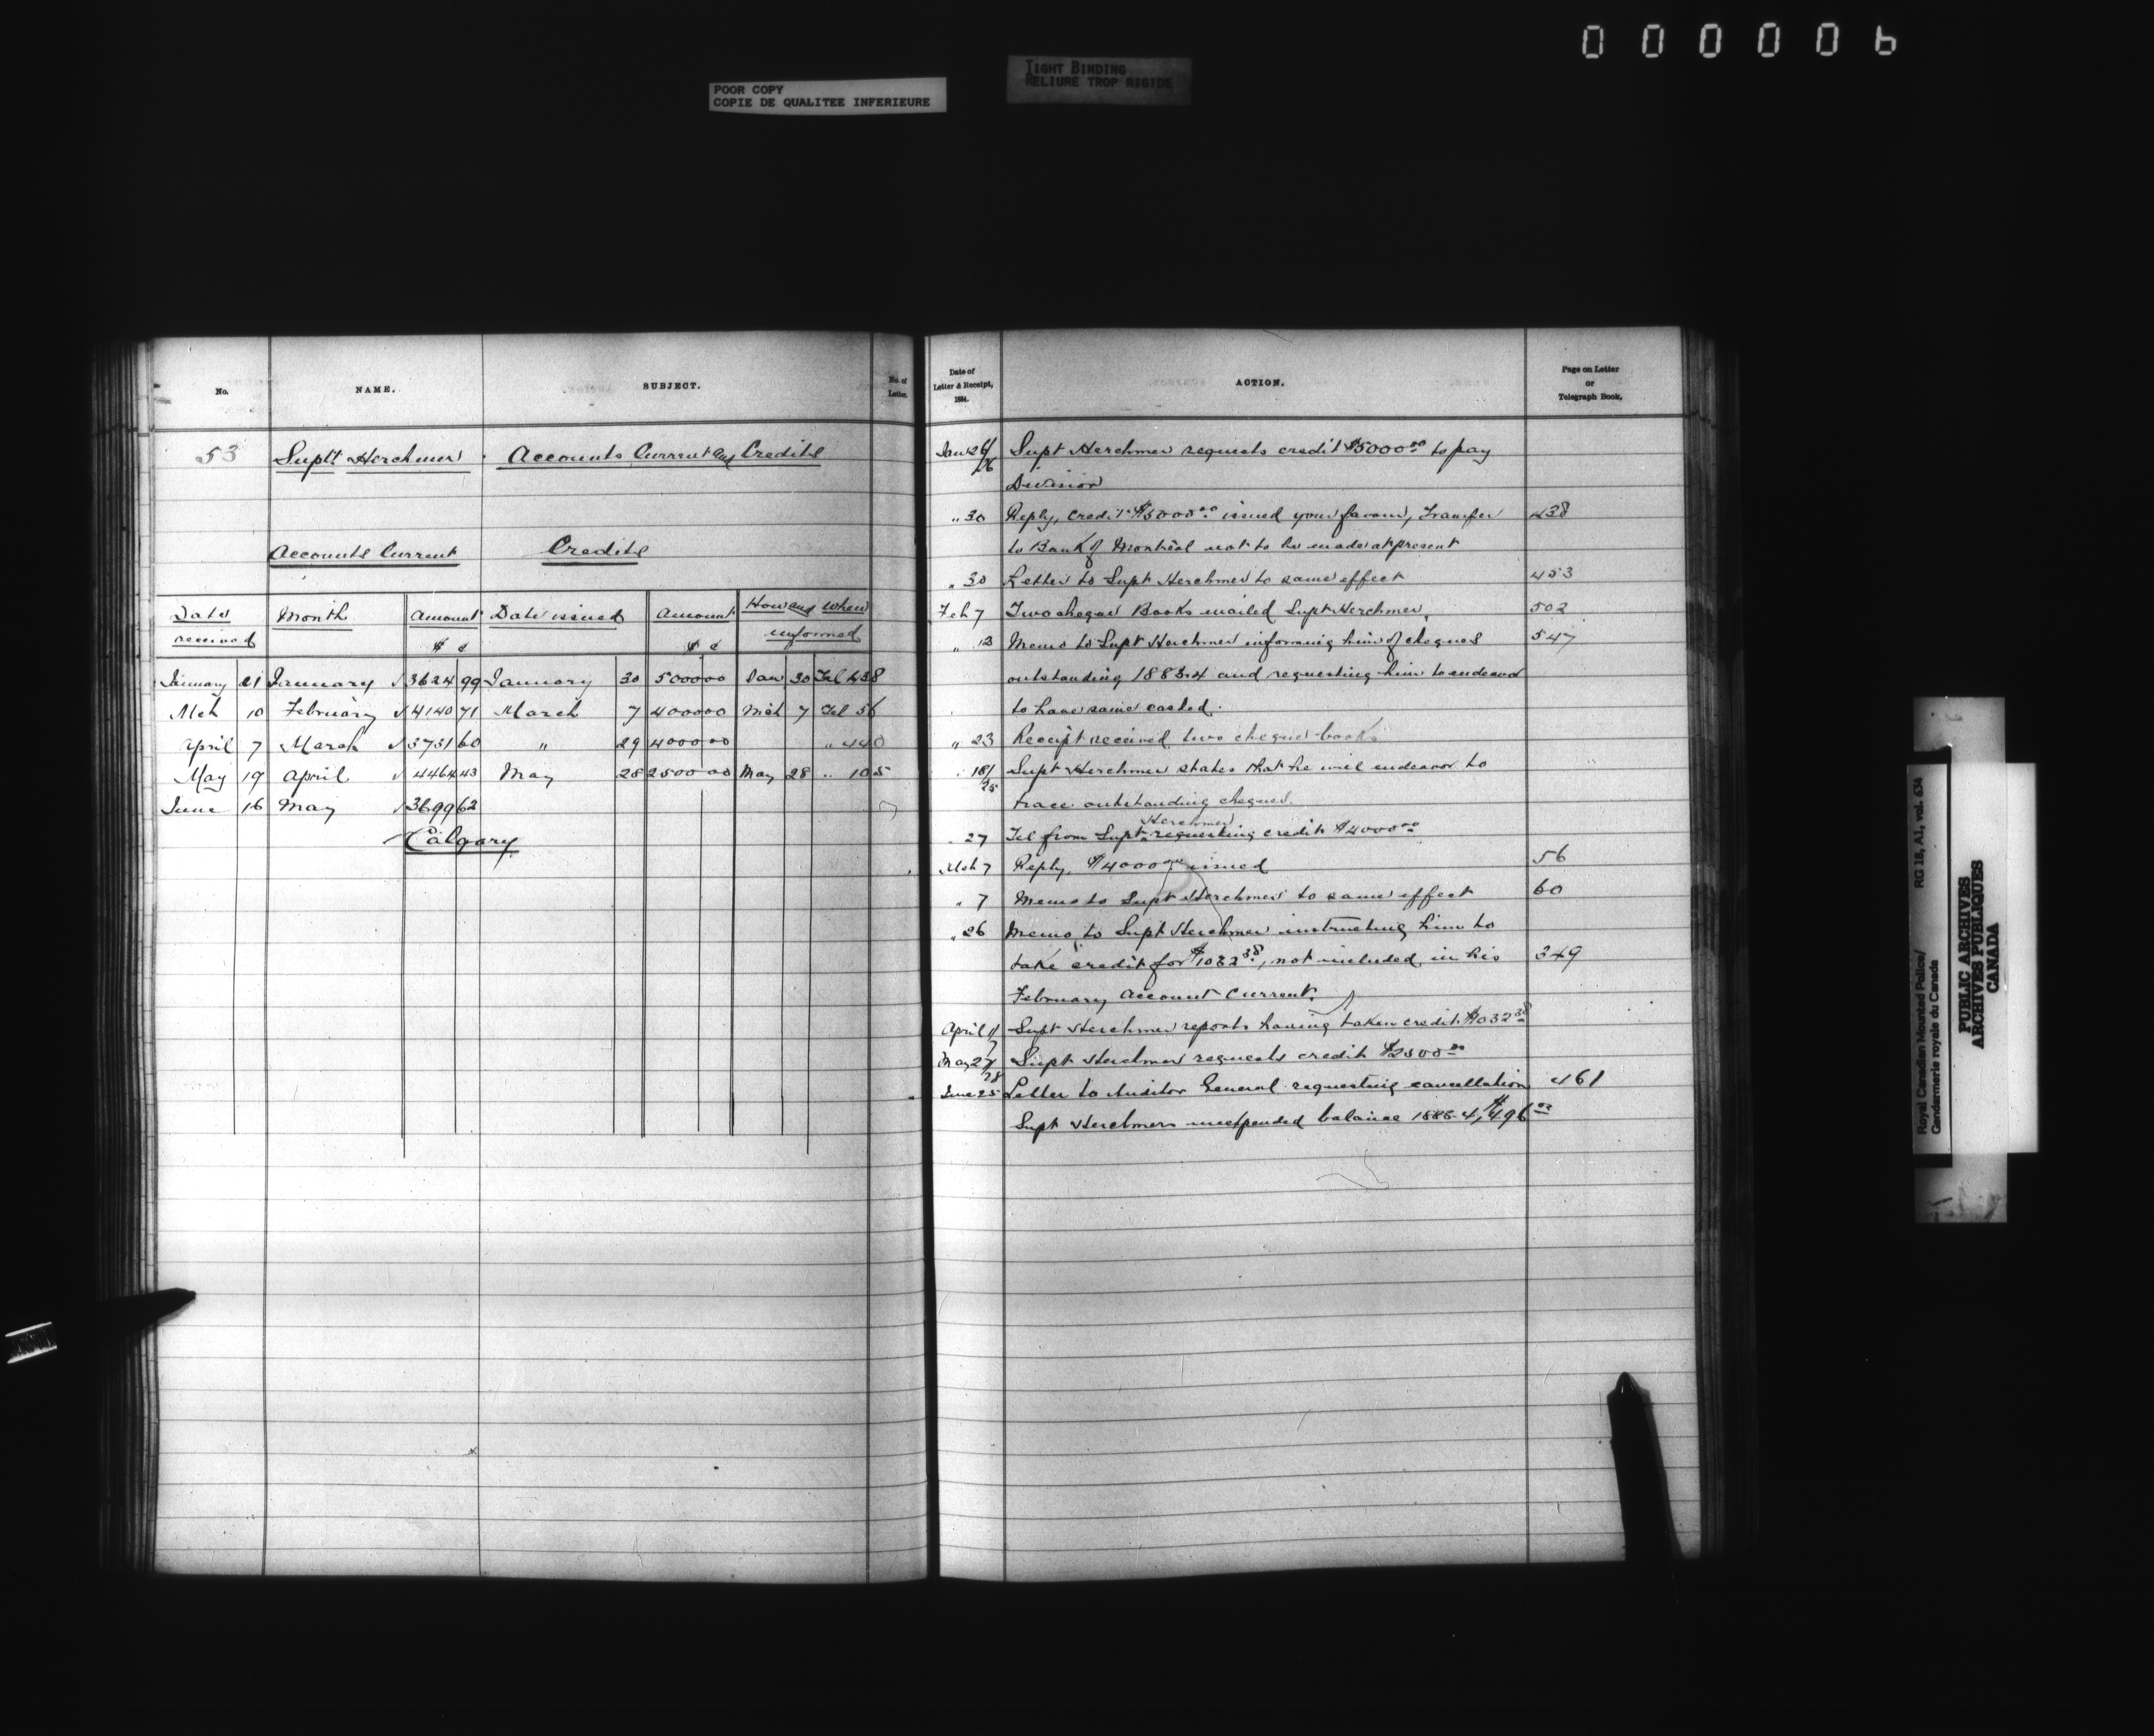 000006
POOR COPY
COPIE DE QUALITEE INFERIEURE
TIGHT BINDING
RELIURE TROP RIGIDE
No. NAME. SUBJECT. No. of Letter.
53 Suptt Herchmer Accounts Current and Credits
Accounts Current Credits
Date received Month Amount $ c Date issued Amount $ c How and when informed
January 21 January √3624 99 January 30 5000 00 Jan 30 Tel 438
Mch 10 February √4140 71 March 7 4000 00 Mch 7 Tel 56
April 7 March √3731 60 " 29 4000 00 " 440
May 19 April √4464 43 May 28 2500 00 May 28 " 105
June 16 May √3699 62
Calgary
Date of Letter & Receipt, 1884. ACTION. Page on Letter or Telegraph Book.
Jan 26/26 Supt Herchmer requests credit $5000.00 to pay
Division
" 30 Reply, credit $5000.00 issued your favour, Transfer 438
to Bank of Montreal not to be made at present
" 30 Letter to Supt Herchmer to same effect 453
Feb 7 Two cheque Books mailed Supt Herchmer. 502
" 13 Memo to Supt Herchmer informing him of cheques 547
outstanding 1883-4 and requesting him to endeavor
to have same cashed.
" 23 Receipt received two cheque books
" 18/25 Supt Herchmer states that he will endeavor to
trace outstanding cheques.
" 27 Tel from Supt Herchmer requesting credit $4000.00
Mch 7 Reply, $4000.00 issued 56
" 7 Memo to Supt Herchmer to same effect 60
" 26 Memo to Supt Herchmer instructing him to
take credit for $1032.38, not included in his 349
February Account Current.
April 1/7 Supt Herchmer reports having taken credit $1032.38
May 27/28 Supt Herchmer requests credit $2500.00
June 25 Letter to Auditor General requesting cancellation 461
Supt Herchmers unexpended balance 1883-4, $496.03
Royal Canadian Mounted Police/ RG 18, A1, vol. 634
Gendarmerie royale du Canada
PUBLIC ARCHIVES
ARCHIVES PUBLIQUES
CANADA